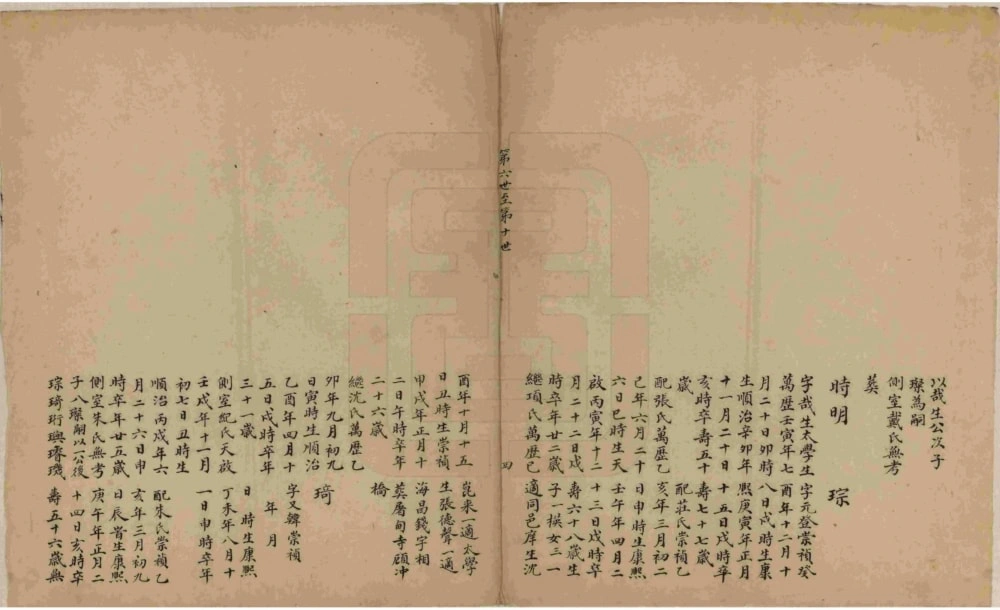 以哉生公次子
璨為嗣
側室戴氏無考
葬
時明
字哉生太學生
萬歷壬寅年七
月二十日卯時
生順治辛卯年
十一月二十日
亥時卒壽五十
歲
配張氏萬歷乙
己年六月二十
六日巳時生天
啟丙寅年十二
月二十二日戌
時卒年二十二歲
繼項氏萬歷己
琮
字元登崇禎癸
酉年十二月十
八日戌時生康
熙庚寅年正月
十五日戌時卒
壽七十七歲
配莊氏崇禎乙
亥年三月初二
日申時生康熙
壬午年四月二
十三日戌時卒
壽六十八歲生
子一模女三一
適同邑庠生沈
第六世至第十世
四
酉年十月十五
日丑時生崇禎
甲戌年正月十
二日午時卒年
二十六歲
繼沈氏萬歷乙
卯年九月初九
日寅時生順治
乙酉年四月十
五日戌時卒年
三十一歲
側室紀氏天啟
壬戌年十一月
初七日丑時生
順治丙戌年六
月二十六日申
時卒年廿五歲
側室朱氏無考
子八璨嗣以一公後
琮琦珩璵璿璣
崑來一適太學
生張德聲一適
海昌錢字相
葬屠甸寺顧冲
橋
琦
字又韓崇禎
年 月
日 時生康熙
丁未年八月十
一日申時卒年
配朱氏崇禎乙
亥年三月初九
日辰時生康熙
庚午年正月二
十四日亥時卒
壽五十六歲無